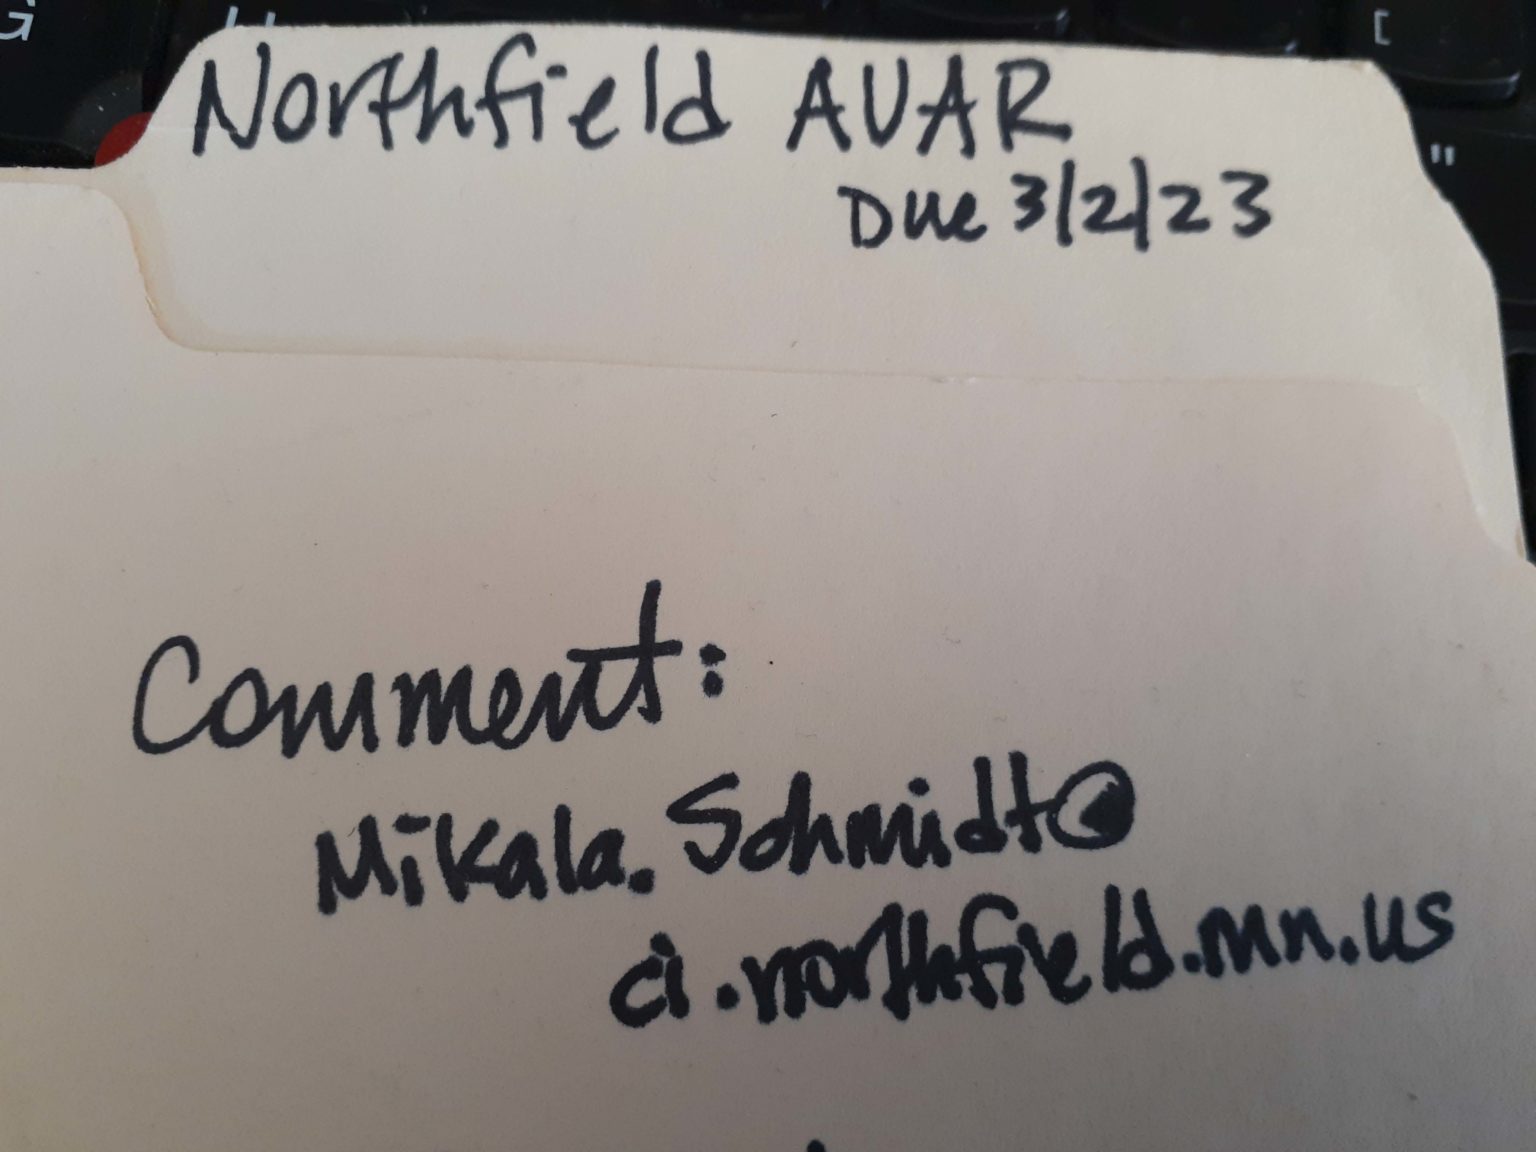 Northfield AUAR
Due 3/2/23
Comment:
Mikala.Schmidt@
ci.northfield.mn.us
G
[
"